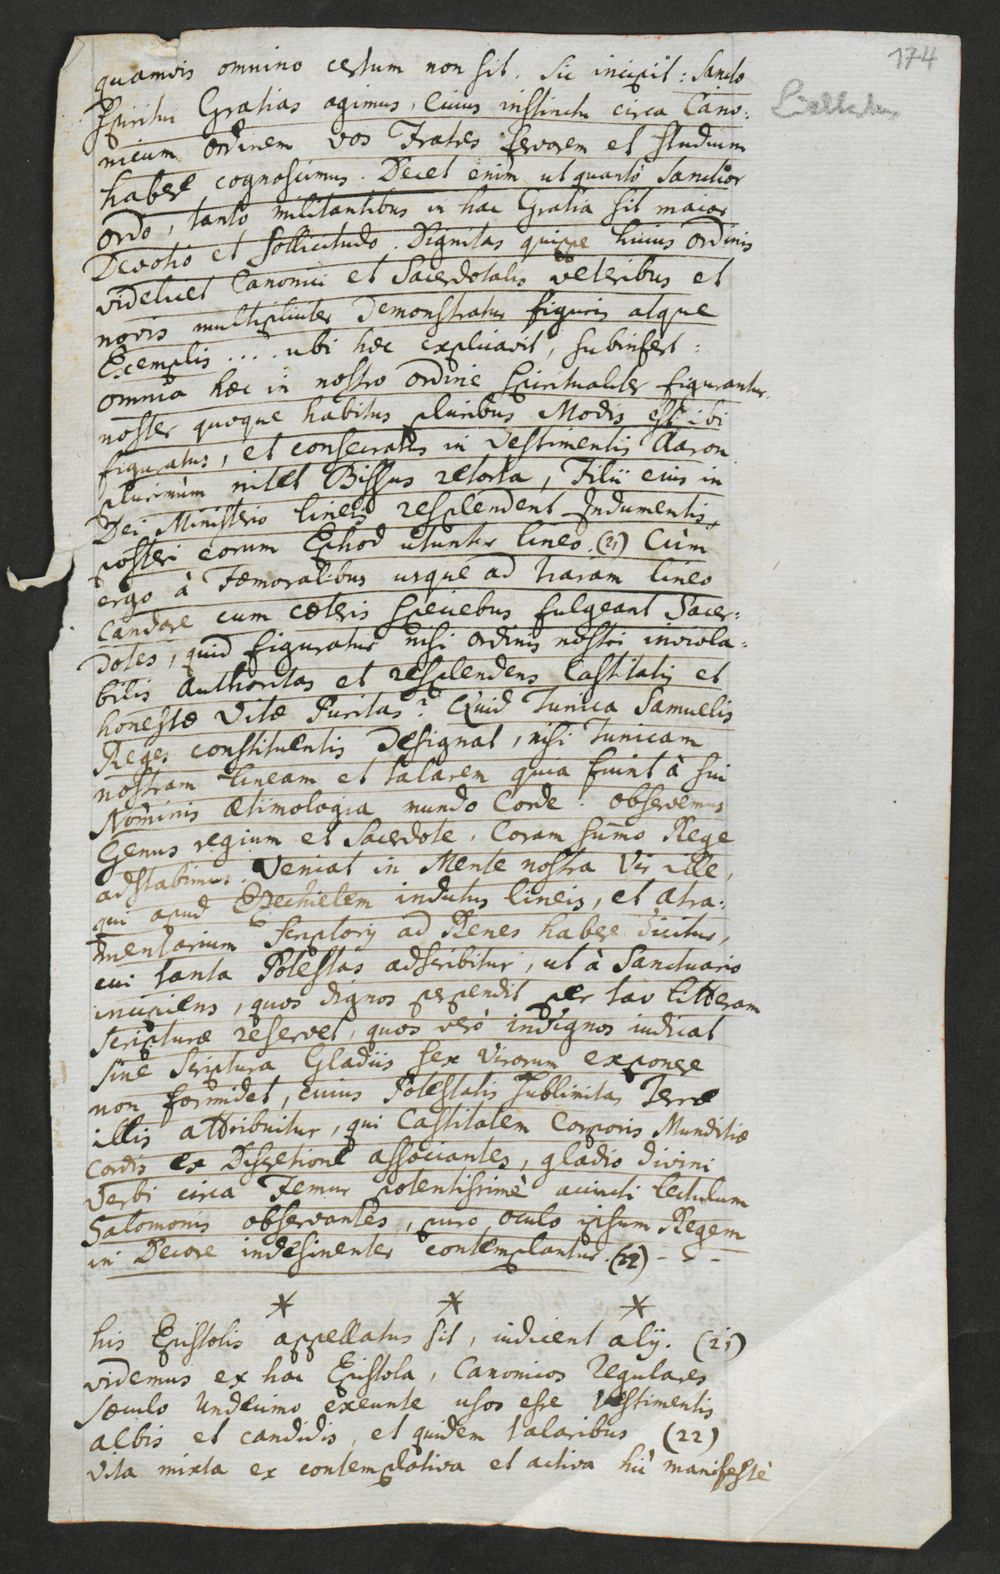 174
quamvis omnino certum non sit. Sic incipit: Sancto
Spiritui Gratias agimus, cuius instinctu circa Cano:
nicum Ordinem vos Fratres fervorem et studium
habere cognoscimus. Decet enim ut quantò sanctior
Ordo, tantò militantibus in hac Gratia sit maior
Devotio et sollicitudo. Dignitas quippe huius Ordinis
videlicet Canonici et Sacerdotalis veteribus et
novis multipliciter Demonstratur figuris atque
Exemplis .... ubi hæc explicavit, subinfert:
omnia hæc in nostro Ordine spiritualiter figurantur.
noster quoque habitus pluribus Modis est ibi
figuratus, et consecratus in vestimentis Aaron
plurimùm nitet Bissus retorta, Filii eius in
Dei Ministerio lineis resplendent Indumentis,
posteri eorum Ephod utuntur lineo. (21) Cùm
ergo à Fæmoralibus usque ad tiaram lineo
candore cum cæteris speciebus fulgeant Sacer:
dotes, quid figuratur nisi Ordinis nostri inviola:
bilis Authoritas et resplendens Castitatis et
honestæ Vitæ Puritas? Quid Tunica Samuelis
Reges constituentis Designat, nisi Tunicam
nostram lineam et talarem quia fuint à sui
Nominis ætimologia mundo Corde. observemus
Genus regium et Sacerdote. Coram summo Rege
adstabimus. Veniat in Mente nostra Vir ille,
qui apud Ezechielem indutus lineis, et atra:
mentarium scriptorij ad Renes habere dicitur,
cui tanta Potestas adscribitur, ut à Sanctuario
incipiens, quos dignos perpendit per tau litteram
scripturæ reservet, quos verò indignos iudicat
sine scriptura Gladiis sex Virorum exponere
non formidet, cuius Potestatis sublimitas Terræ
illis attribuitur, qui Castitatem Corporis Munditiæ
Cordis ex Discretione associantes, gladio divini
verbi circa Femur potentissimè accincti lectulum
Salomonis observantes, puro oculo ipsum Regem
in Decore indesinenter contemplantur. (22) - - -
* * *
his Epistolis appellatus sit, indicent alij. (21)
videmus ex hac Epistola, Canonicos Regulares
sæculo Undecimo exeunte usos esse vestimentis
albis et candidis, et quidem talaribus (22)
vita mixta ex contemplativa et activa hìc manifestè